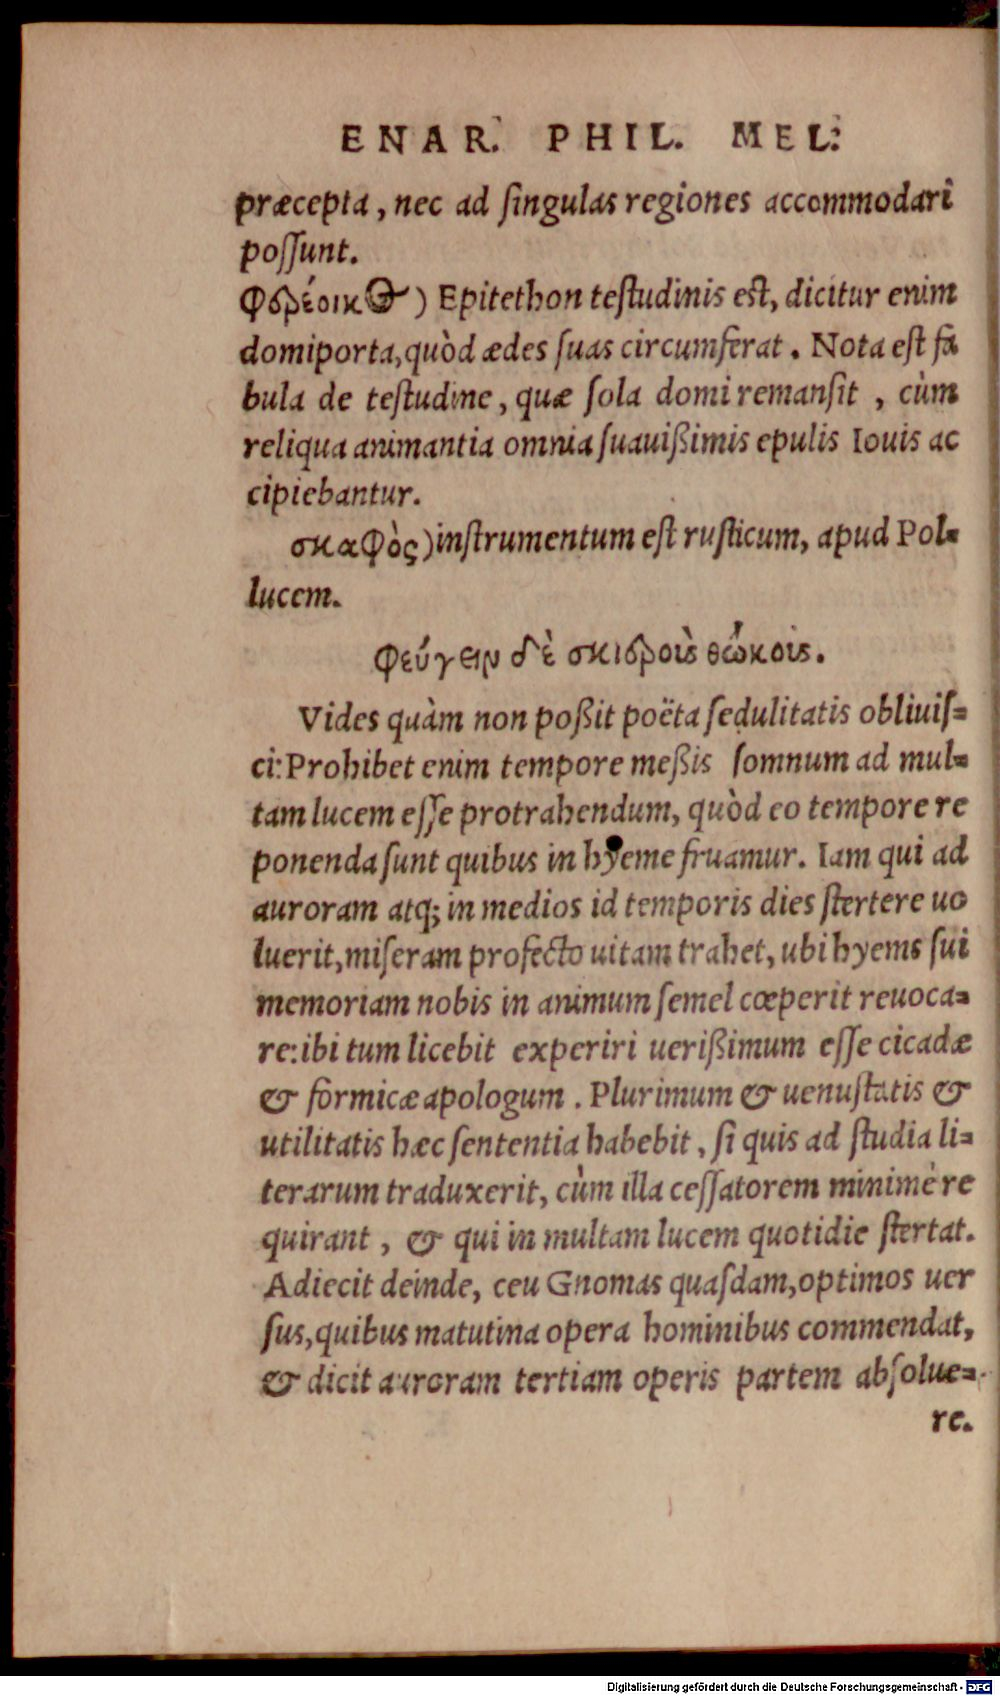 ENAR. PHIL. MEL:
præcepta, nec ad ſingulas regiones accommodari
poſſunt.
φερέοικος) Epitethon teſtudinis eſt, dicitur enim
domiporta, quòd ædes ſuas circumferat. Nota eſt fa
bula de teſtudine, quæ ſola domi remanſit, cùm
reliqua animantia omnia ſuauißimis epulis Iouis ac
cipiebantur.
σκαφὸς) inſtrumentum eſt ruſticum, apud Pol=
lucem.
φεύγειν δὲ σκιεροὺς θώκους.
Vides quàm non poßit poëta ſedulitatis obliuiſ=
ci: Prohibet enim tempore meßis ſomnum ad mul=
tam lucem eſſe protrahendum, quòd eo tempore re
ponenda ſunt quibus in hyeme fruamur. Iam qui ad
auroram atq; in medios id temporis dies ſtertere uo
luerit, miſeram profecto uitam trahet, ubi hyems ſui
memoriam nobis in animum ſemel cœperit reuoca=
re: ibi tum licebit experiri uerißimum eſſe cicadæ
& formicæ apologum. Plurimum & uenuſtatis &
utilitatis hæc ſententia habebit, ſi quis ad ſtudia li=
terarum traduxerit, cùm illa ceſſatorem minimè re
quirant, & qui in multam lucem quotidie ſtertat.
Adiecit deinde, ceu Gnomas quaſdam, optimos uer
ſus, quibus matutina opera hominibus commendat,
& dicit auroram tertiam operis partem abſolue=
re.
Digitalisierung gefördert durch die Deutsche Forschungsgemeinschaft - DFG